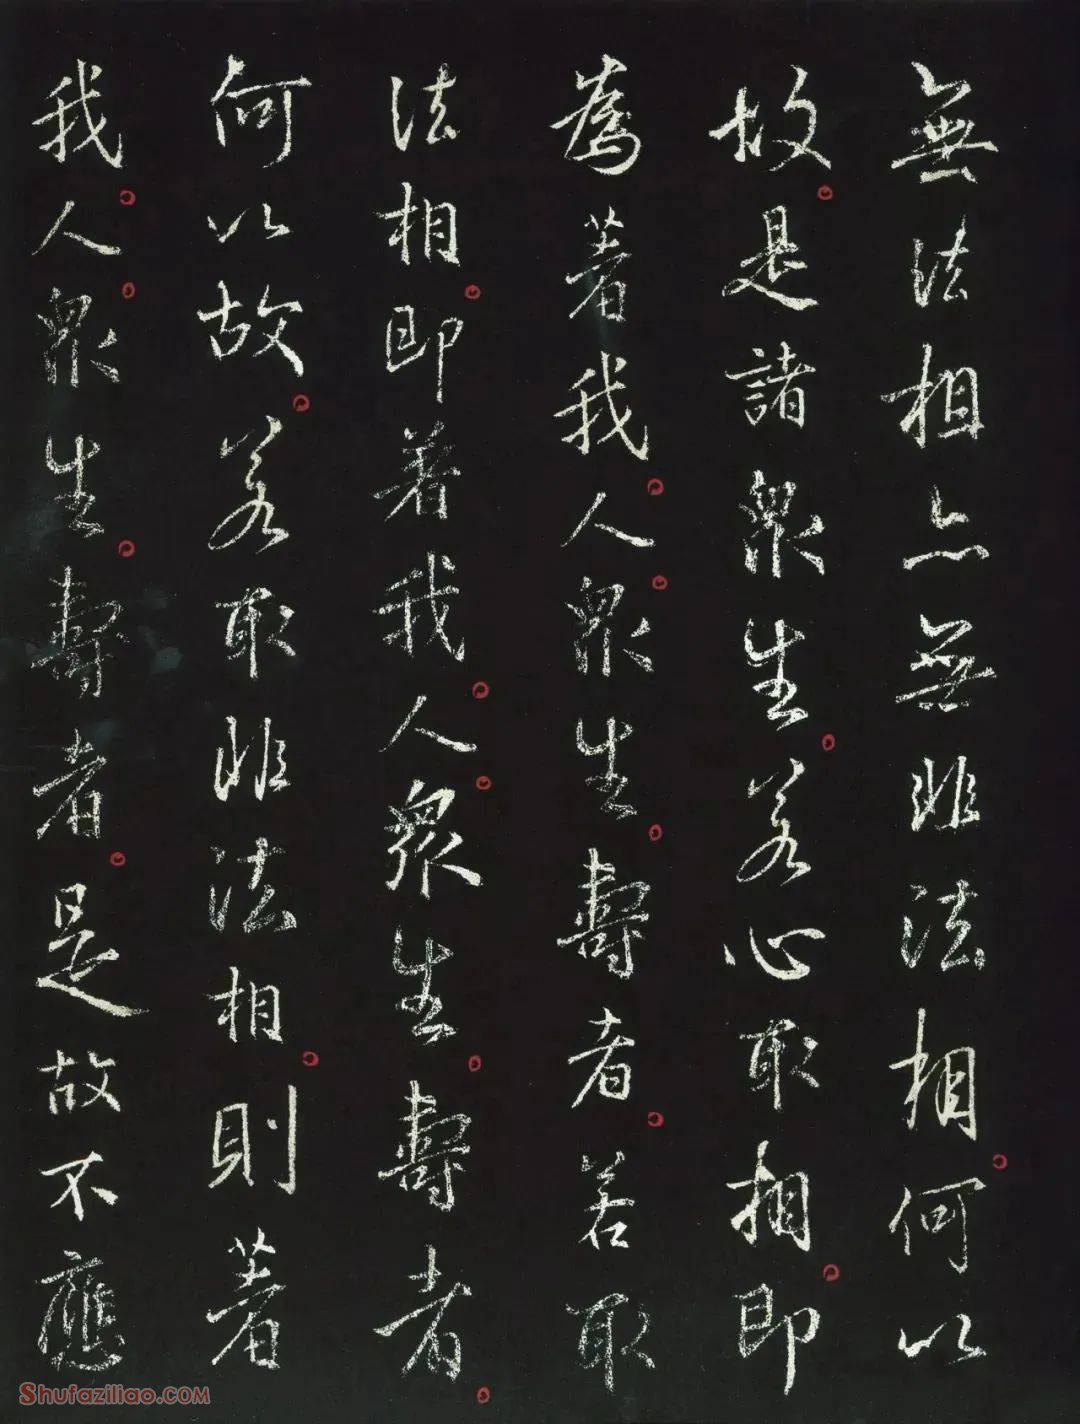 無法相亦無非法相。何以
故。是諸眾生。若心取相。即
為著我。人。眾生。壽者。若取
法相。即著我。人。眾生。壽者。
何以故。若取非法相。則著
我。人。眾生。壽者。是故不應
Shufaziliao.com